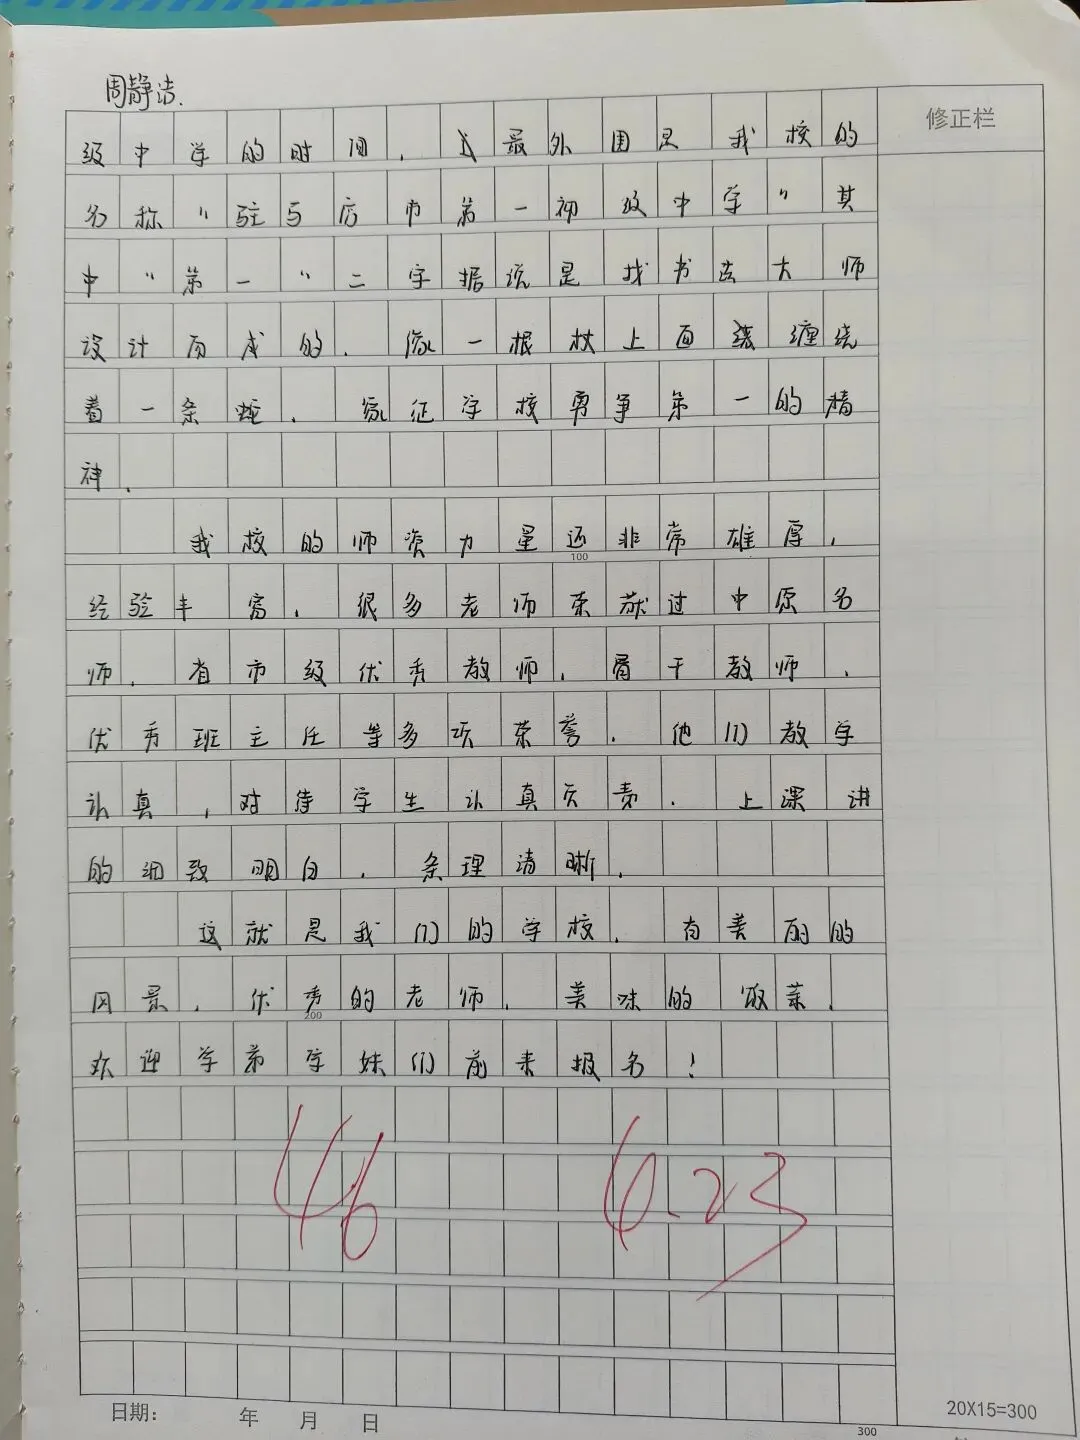 周静洁.
修正栏
级中学的时间，最外围是我校的
名称“驻马店市第一初级中学”其
中“第一”二字据说是找书法大师
设计而成的.像一根杖上面缠绕
着一条蛇.象征学校勇争第一的精
神.
我校的师资力量还非常雄厚，
100
经验丰富.很多老师荣获过中原名
师.省市级优秀教师.骨干教师.
优秀班主任等多项荣誉.他们教学
认真，对待学生认真负责.上课讲
的细致明白.条理清晰.
这就是我们的学校.有美丽的
风景.优秀的老师.美味的饭菜.
200
欢迎学弟学妹们前来报名！
46 6.23
日期： 年 月 日
20X15=300
300